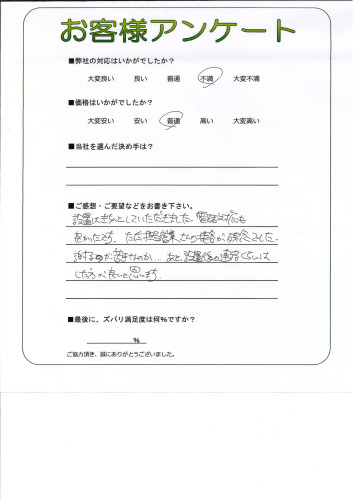 お客様アンケート
■弊社の対応はいかがでしたか?
大変良い 良い 普通 不満 大変不満
■価格はいかがでしたか?
大変安い 安い 普通 高い 大変高い
■当社を選んだ決め手は?
■ご感想・ご要望などをお書き下さい。
設置はきちんとしていただきました。電話対応も
良かったです。ただ担当営業さんの接客が残念でした。
謝るのが苦手なのか… あと、設置後の連絡くらいは
した方が良いと思います。
■最後に、ズバリ満足度は何%ですか?
%
ご協力頂き、誠にありがとうございました。